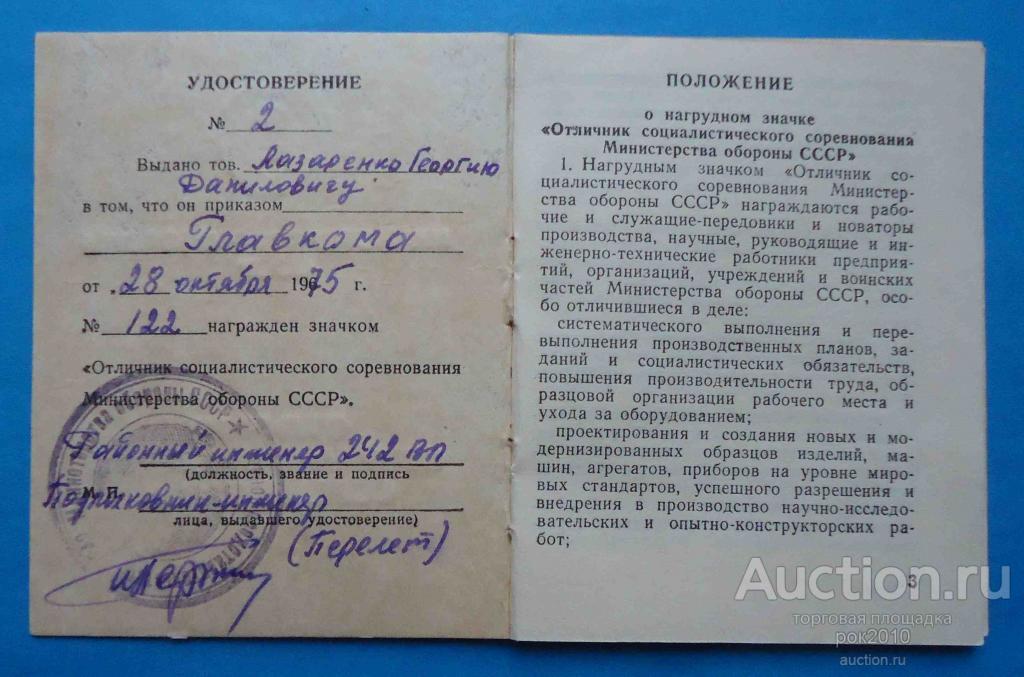 УДОСТОВЕРЕНИЕ
№ 2
Выдано тов. Лазаренко Георгию
Даниловичу
в том, что он приказом
Главкома
от „28 октября 1975 г.
№ 122 награжден значком
«Отличник социалистического соревнования
Министерства обороны СССР».
Районный инженер 242 ВП
(должность, звание и подпись
М.П.
Подполковник-инженер
лица, выдавшего удостоверение)
(Перелет)
обороны СССР
ПОЛОЖЕНИЕ
о нагрудном значке
«Отличник социалистического соревнования
Министерства обороны СССР»
1. Нагрудным значком «Отличник со-
циалистического соревнования Министер-
ства обороны СССР» награждаются рабо-
чие и служащие-передовики и новаторы
производства, научные, руководящие и ин-
женерно-технические работники предприя-
тий, организаций, учреждений и воинских
частей Министерства обороны СССР, осо-
бо отличившиеся в деле:
систематического выполнения и пере-
выполнения производственных планов, за-
даний и социалистических обязательств,
повышения производительности труда, об-
разцовой организации рабочего места и
ухода за оборудованием;
проектирования и создания новых и мо-
дернизированных образцов изделий, ма-
шин, агрегатов, приборов на уровне миро-
вых стандартов, успешного разрешения и
внедрения в производство научно-исследо-
вательских и опытно-конструкторских ра-
бот;
3
Auction.ru
торговая площадка
рок2010
auction.ru